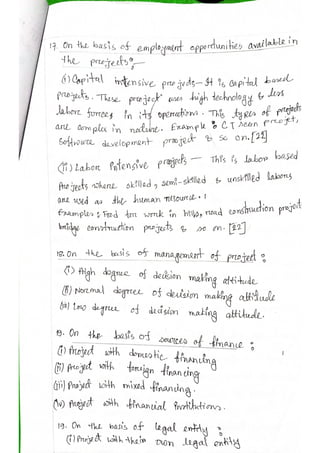 17. On the basis of employment opportunities available in
the projects :-
(i) Capital intensive projects - It is capital based
projects. These project uses high technology & less
labore forces in its operations. This types of projects
are complex in nature. Example : CT scan project,
Software development project & so on. [22]
(ii) Labor Intensive projects - This is labor based
projects where skilled, semi-skilled & unskilled labors
are used as the human resource.
Examples : work in hills, road construction project
bridge construction projects & so on. [22]
18. On the basis of management of project :
(i) High degree of decision making attitude
(ii) Normal degree of decision making attitude
(iii) Low degree of decision making attitude.
19. On the basis of sources of finance :
(i) Project with domestic financing
(ii) Project with foreign financing
(iii) Project with mixed financing.
(iv) Project with financial institutions.
19. On the basis of legal entity :
(i) Project with their own legal entity